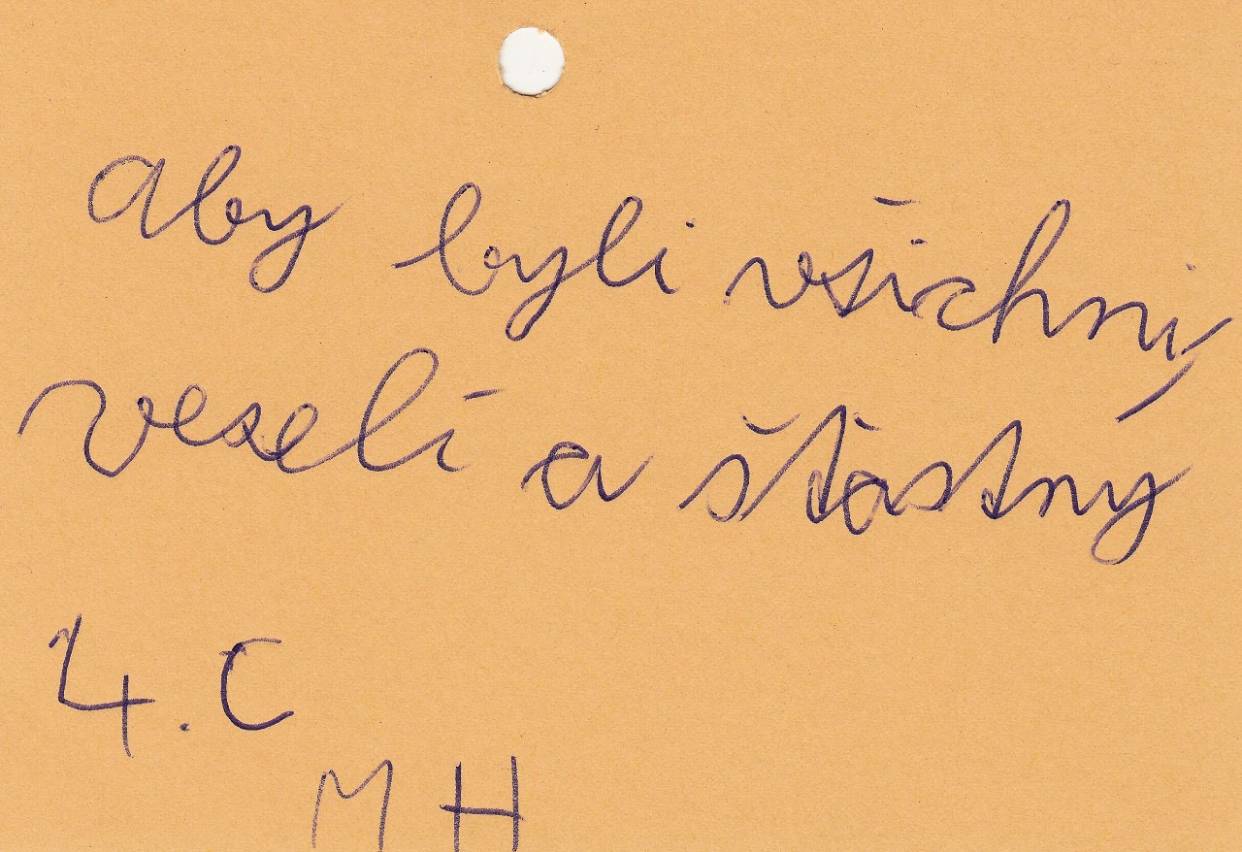 aby byli všichni
veselí a šťastný
4.C
M H